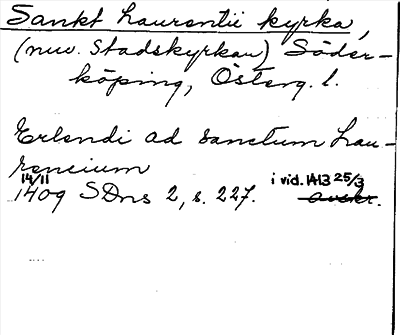 Sankt Laurentii kyrka,
(nuv. Stadskyrkan) Söder-
köping, Österg. l.
Erlendi ad sanctum Lau-
rencium
14/11
1409 SDns 2, s. 227. i vid. 1413 25/3
avskr.